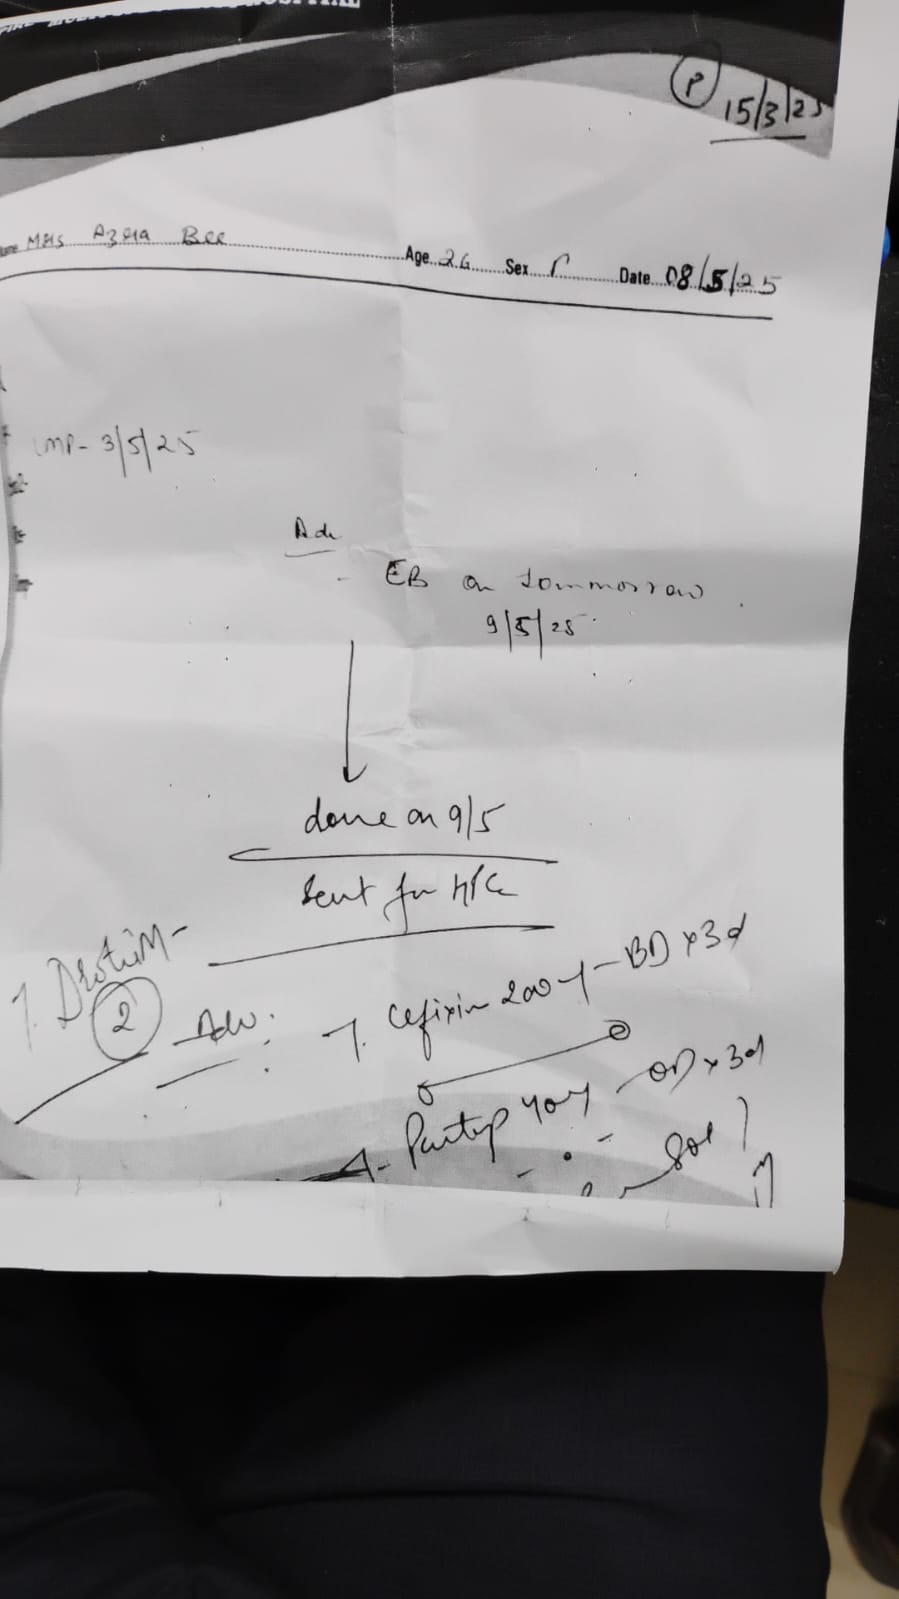 (P) 15/3/25
Mrs Azra Bee Age 26 Sex F Date 08/5/25
LMP- 3/5/25
Adv
- EB on tommorrow
9/5/25
done on 9/5
Sent for H/C
T. Drotin M-
(2) Adv:
T. Cefixin 200 - BD x 3d
40 - OD x 3d